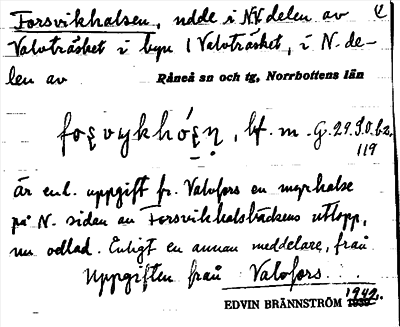 Forsvikhalsen, udde i NV. delen av
Valvträsket i byn 1 Valvträsket, i N. de-
len av
Råneå sn och tg, Norrbottens län
bf. m. G. 29. I. 0. b2.
119
är enl. uppgift fr. Valvfors en myrhalse
på N. sidan av Forsvikhalsbäckens utlopp,
nu odlad. Enligt en annan meddelare, från
Uppgiften från Valvfors.
EDVIN BRÄNNSTRÖM 1942.